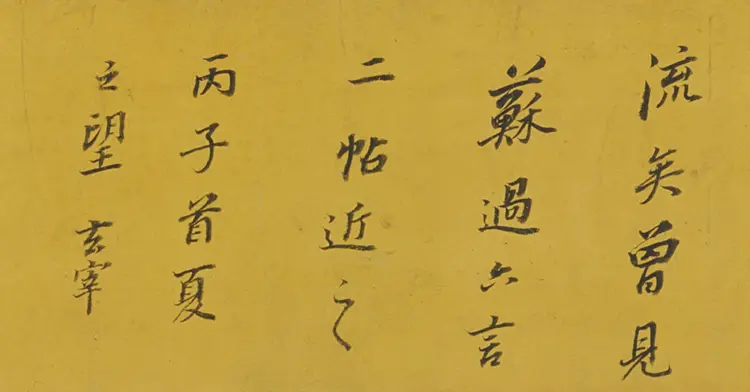 流矣曾見
蘇過六言
二帖近之
丙子首夏
之望玄宰